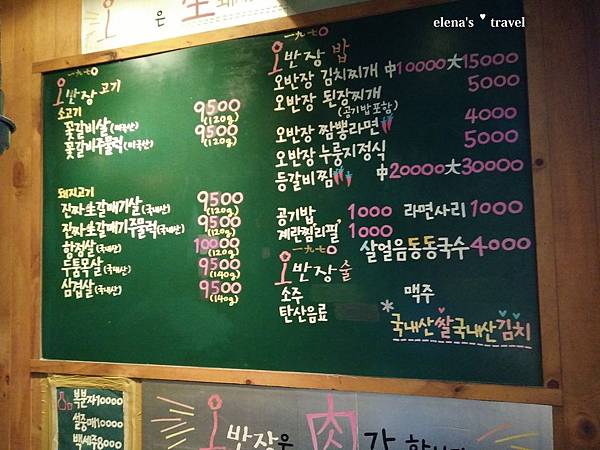 elena's ♥ travel
은 生
一九七0
오반장 고기
소고기
꽃갈비살(미국산) 9500
(120g)
꽃갈비주물럭(미국산) 9500
(120g)
돼지고기
진짜生갈매기살(국내산) 9500
(120g)
진짜生갈매기주물럭(국내산) 9500
(120g)
항정살(국내산) 10000
(120g)
두툼목살(국내산) 9500
(140g)
삼겹살(국내산) 9500
(140g)
一九七0
오반장 밥
오반장 김치찌개 中10000 大15000
오반장 된장찌개 5000
(공기밥포함)
오반장 짬뽕라면 4000
오반장 누룽지정식 5000
등갈비찜 中20000 大30000
공기밥 1000 라면사리 1000
계란찜리필 1000
살얼음동동국수 4000
一九七0
오반장 술
소주 맥주
탄산음료
*국내산쌀국내산김치
복분자10000
설중매10000
백세주8000
오반장은 肉